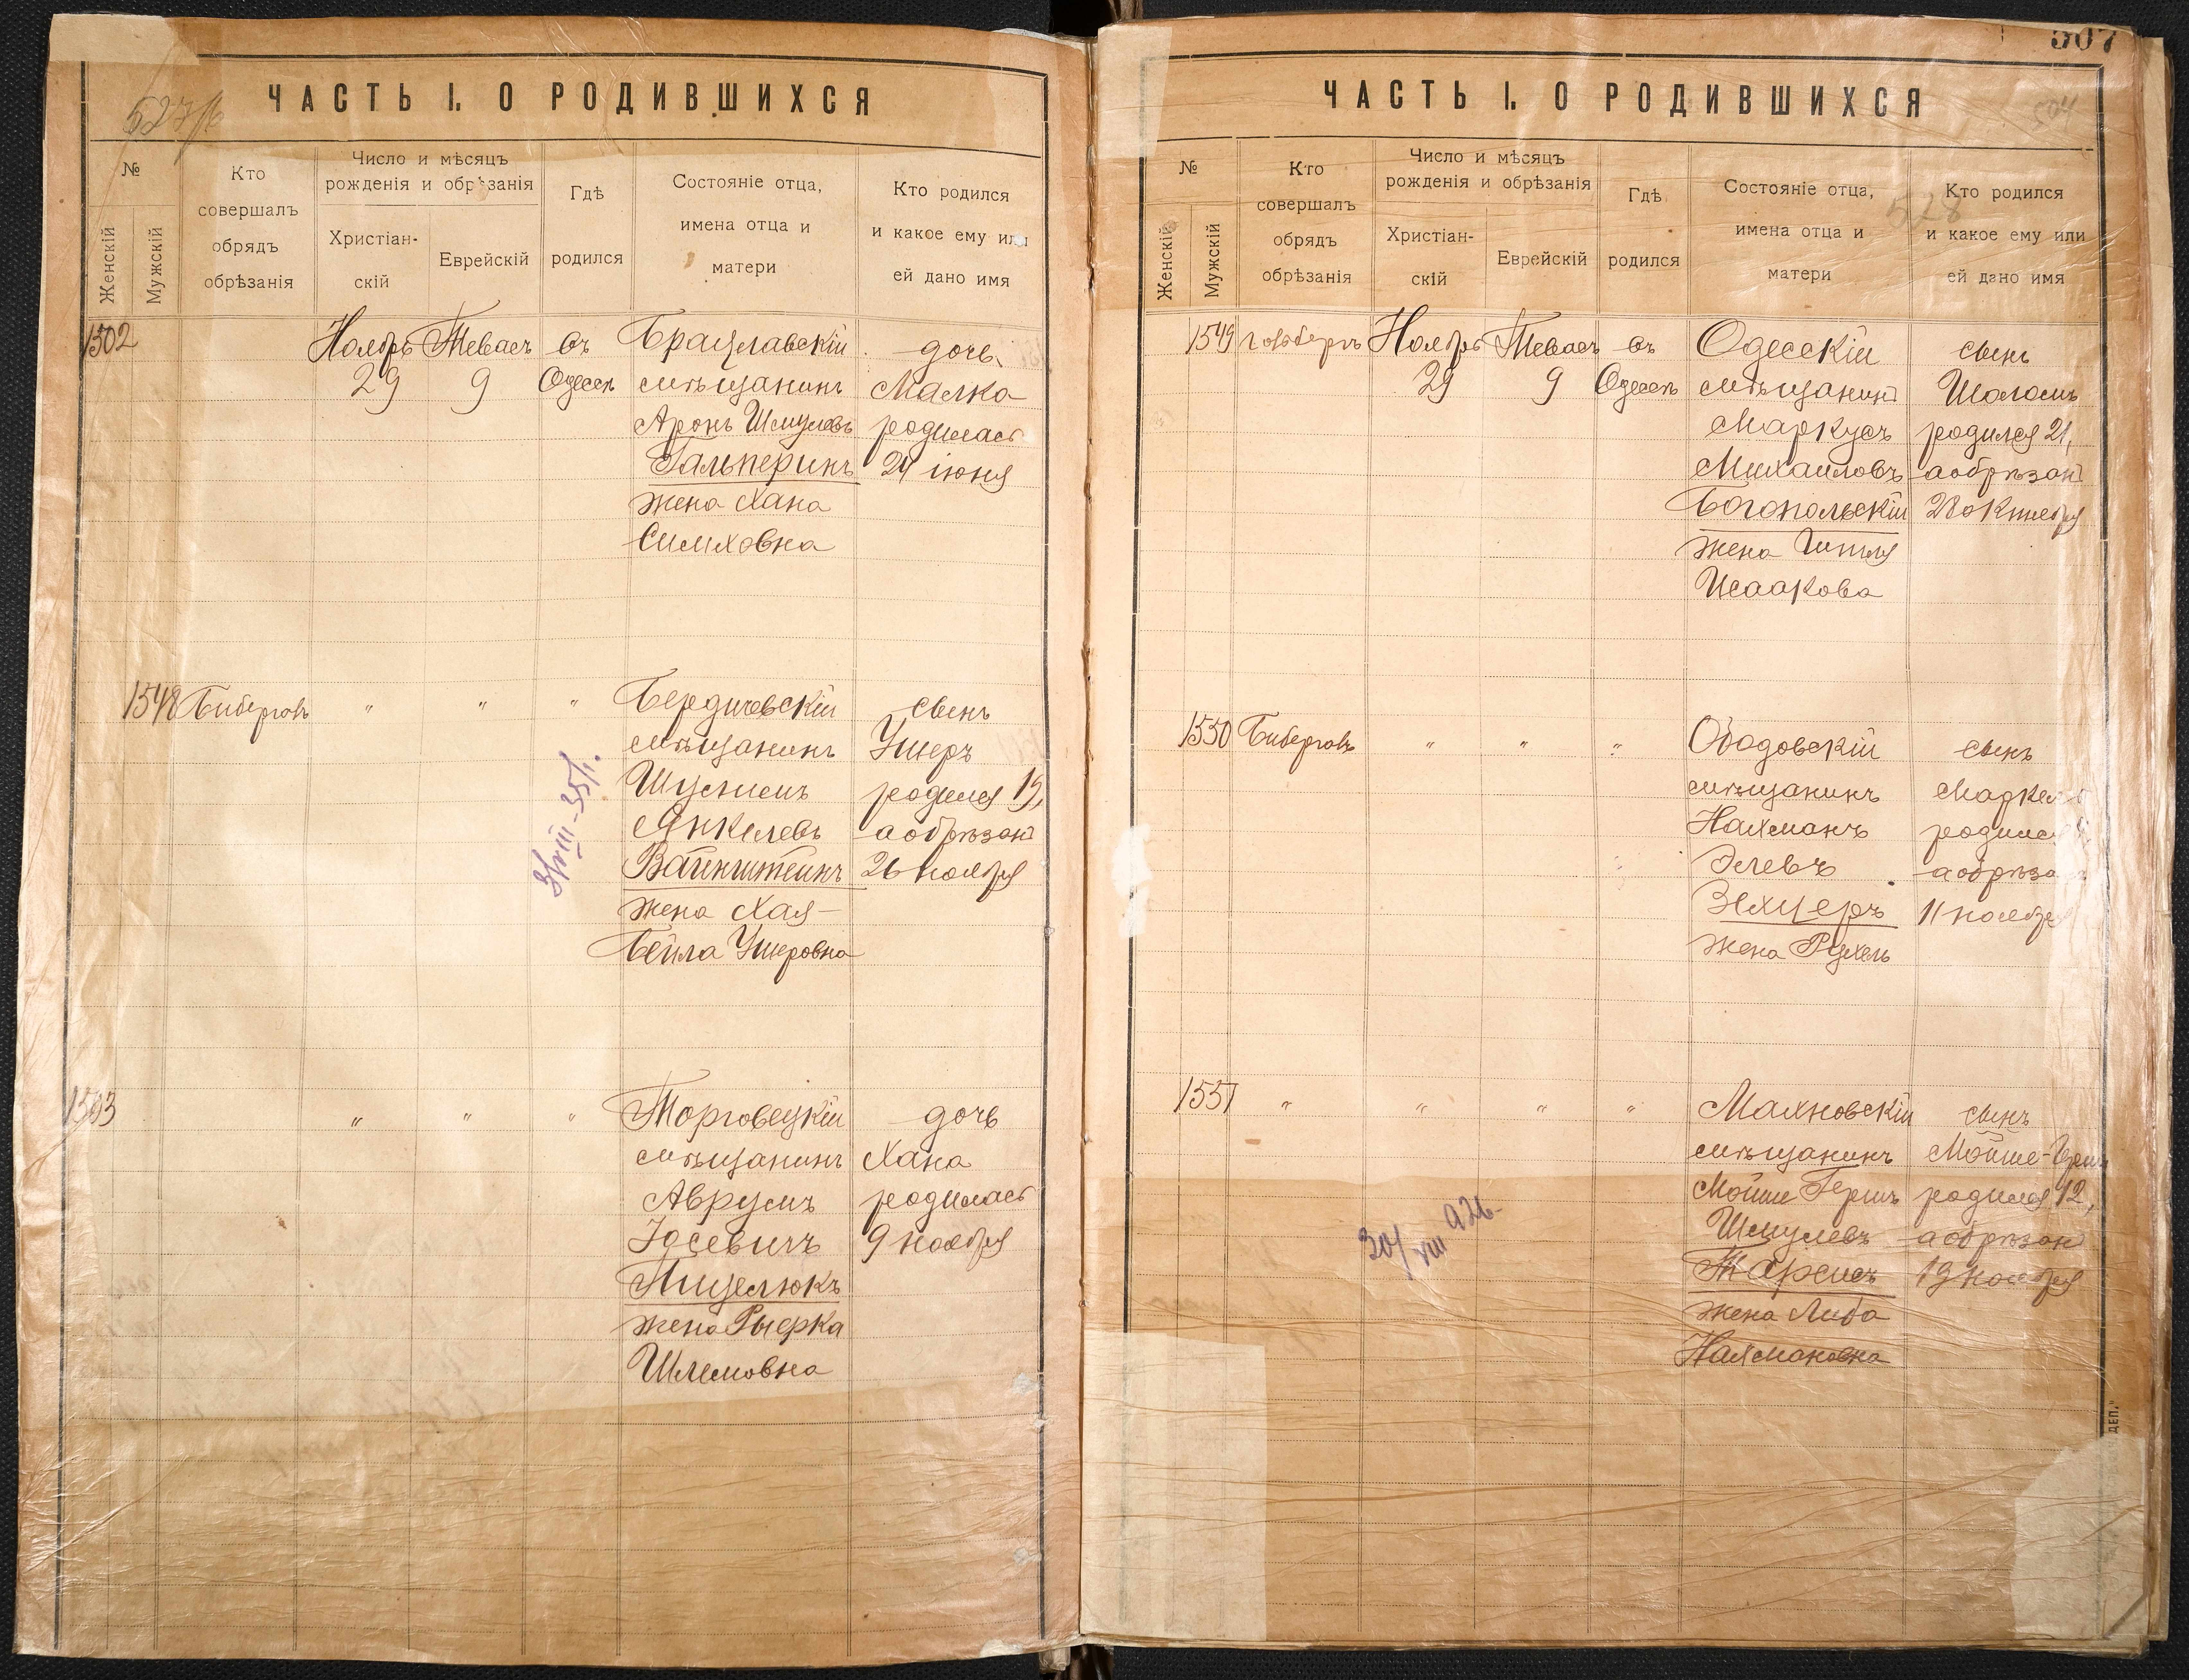 ЧАСТЬ I. О РОДИВШИХСЯ
№
Женскій
Мужскій
Кто совершалъ обрядъ обрѣзанія
Число и мѣсяцъ рожденія и обрѣзанія
Христіан-скій
Еврейскій
Гдѣ родился
Состояніе отца, имена отца и матери
Кто родился и какое ему или ей дано имя
1502 Ноябрь Теваеъ въ Брацлавскій дочь
29 9 Одессѣ мѣщанинъ Малка
Аронъ Шмулевъ родилась
Гальперинъ 24 іюня
жена Хана
Симховна
1548 Биберговъ " " " Бердичевскій сынъ
мѣщанинъ Ушеръ
Шулимъ родился 19,
Янкелевъ а обрѣзанъ
Вайнштейнъ 26 ноября
жена Хая-
Бейла Ушеровна
31/VIII-35/г.
1503 " " " Торговецкій дочь
мѣщанинъ Хана
Аврумъ родилась
Іосевичъ 9 ноября
Пицелюкъ
жена Рыерка
Шлемовна
507
ЧАСТЬ I. О РОДИВШИХСЯ
504
528
№
Женскій
Мужскій
Кто совершалъ обрядъ обрѣзанія
Число и мѣсяцъ рожденія и обрѣзанія
Христіан-скій
Еврейскій
Гдѣ родился
Состояніе отца, имена отца и матери
Кто родился и какое ему или ей дано имя
1549 Гольбергъ Ноябрь Теваеъ въ Одесскій сынъ
29 9 Одессѣ мѣщанинъ Шоломъ
Маркусъ родился 21,
Михаиловъ а обрѣзанъ
Богопольскій 28 октября
жена Гитля
Исаакова
1550 Биберговъ " " " Ободовскій сынъ
мѣщанинъ
Нахманъ родился
Элевъ а обрѣза
Зельцеръ 11 ноября
жена Рухель
1551 " " " " Махновскій сынъ
мѣщанинъ Мойше-
Мойше Гершъ родился 12,
Шмулевъ а обрѣзанъ
Тарсисъ 19 ноября
жена Либа
Нахмановна
30/VIII 926
ДЕП."